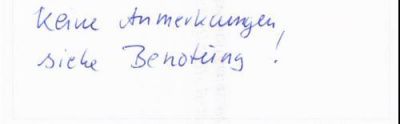 Keine Anmerkungen,
siehe Benotung!